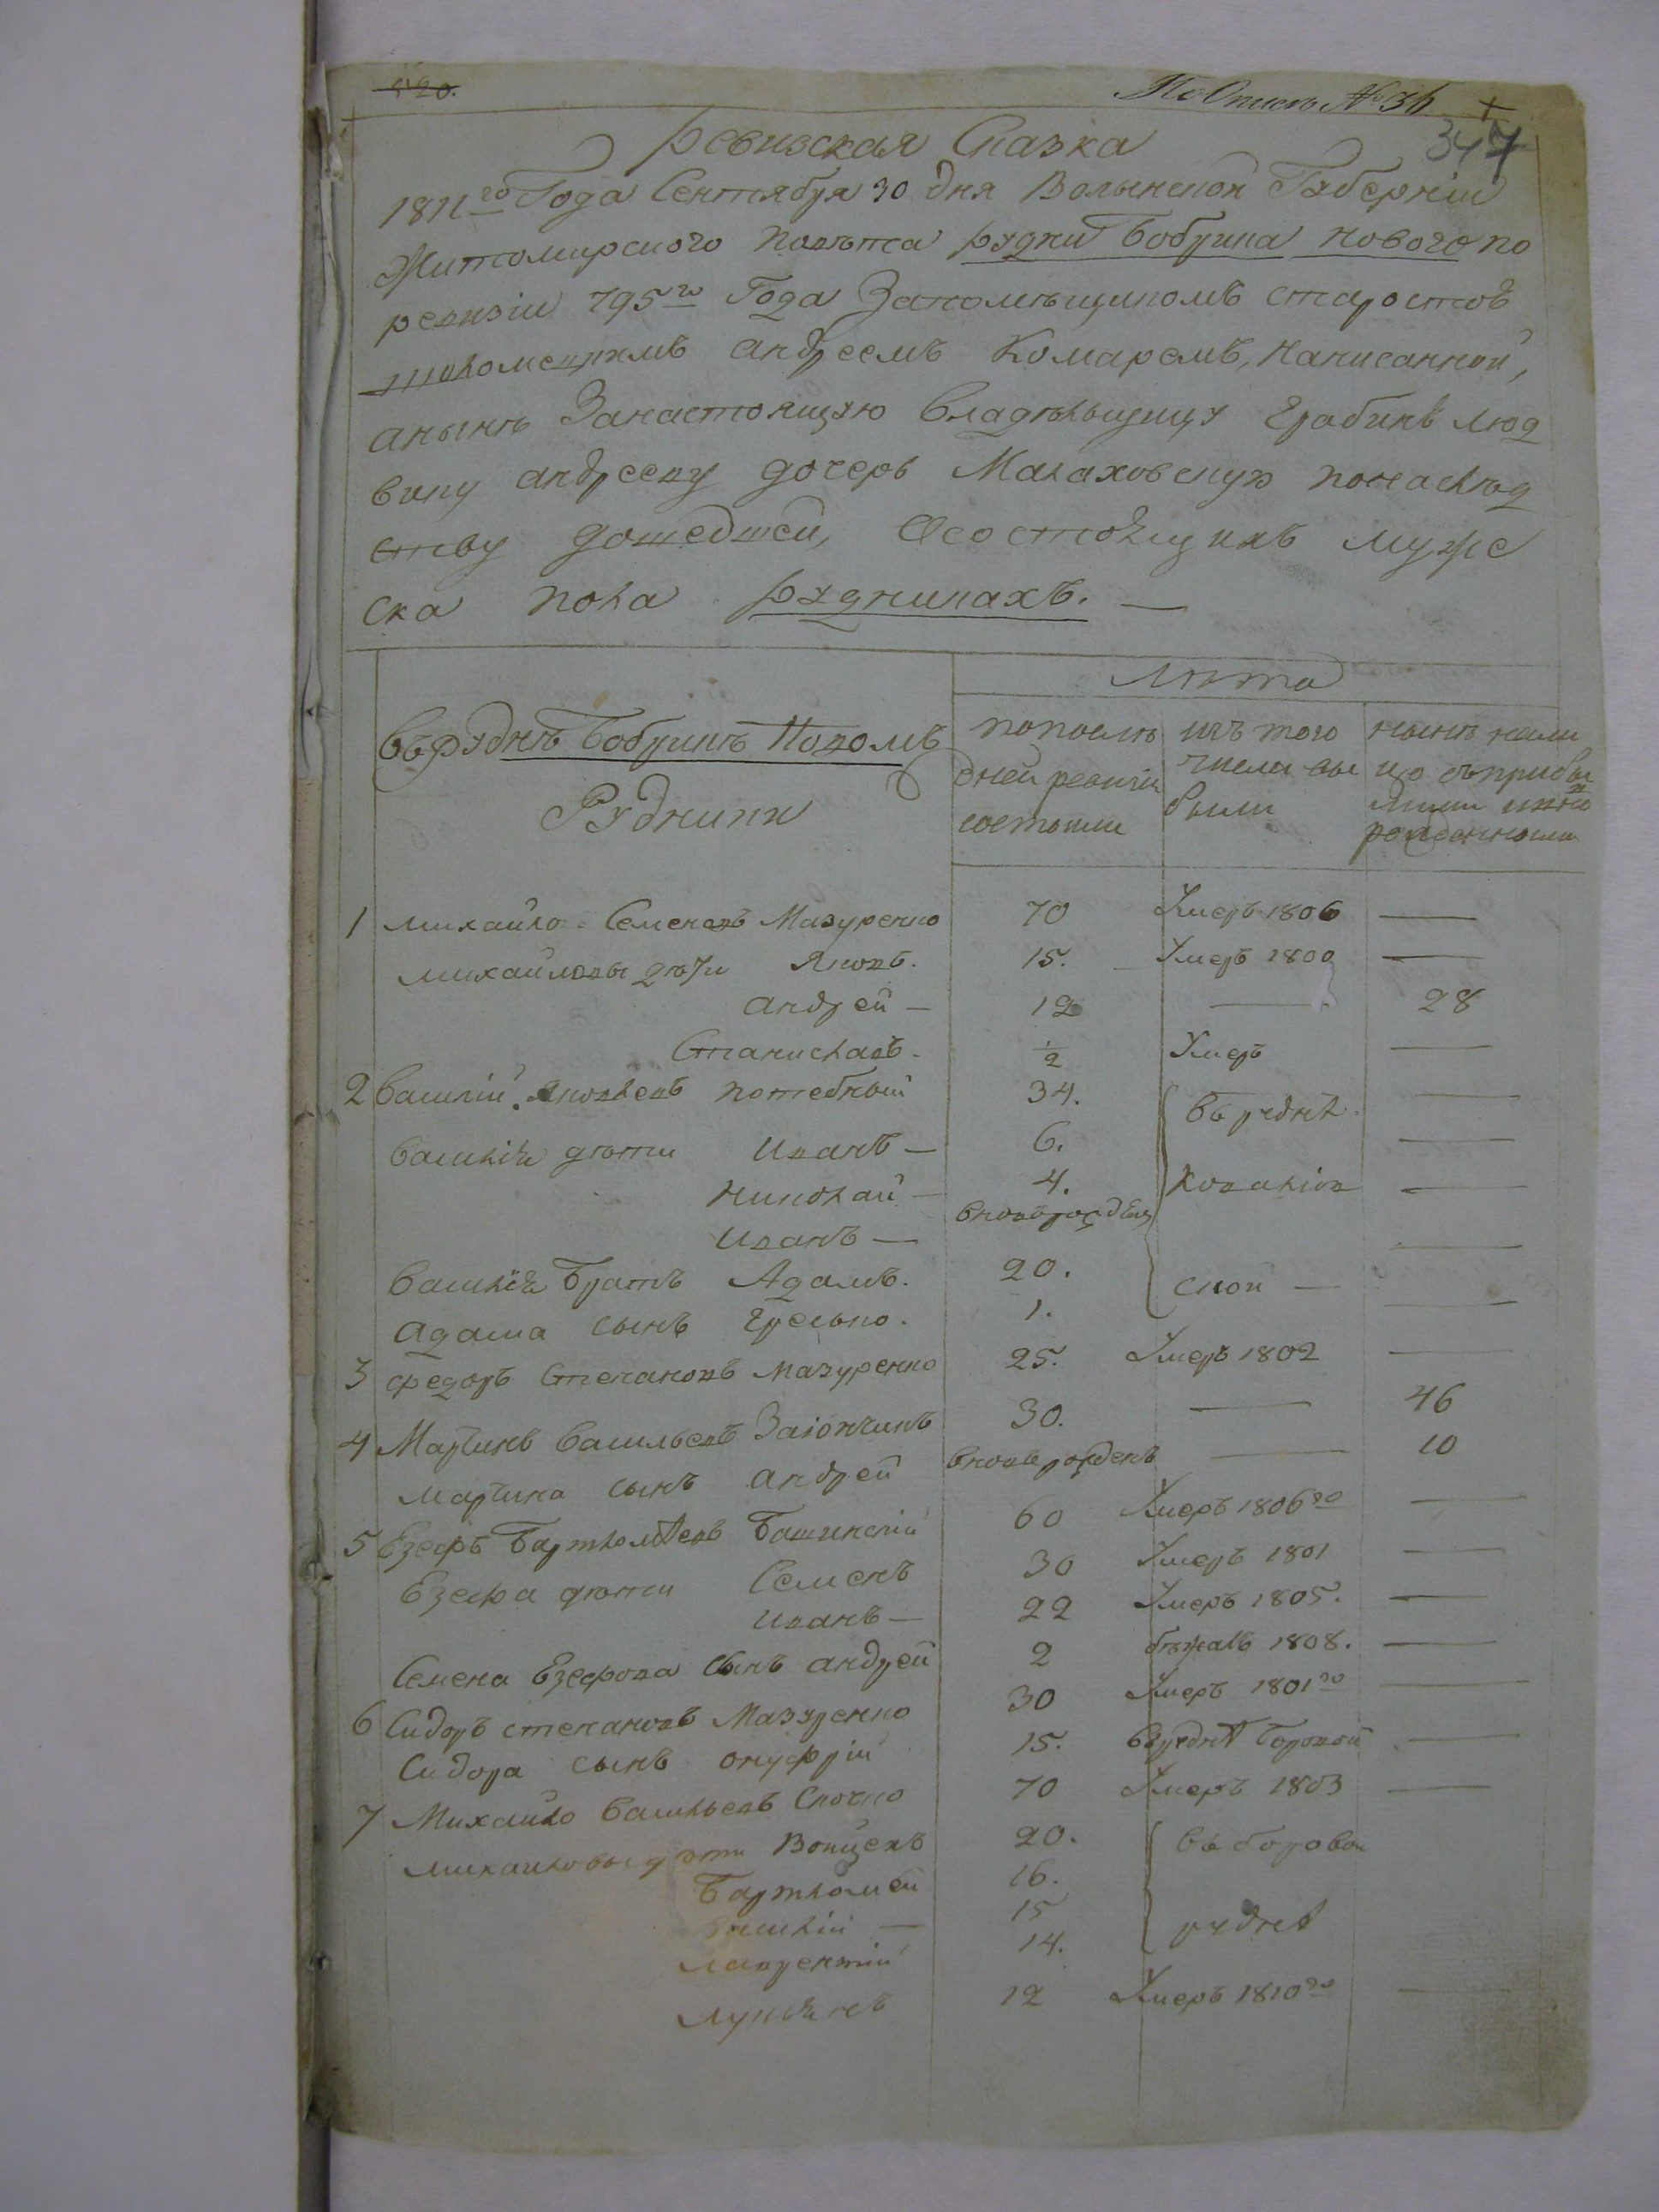 520.
По Описи № 34
347
Ревизская Сказка
1811го Года Сентября 30 дня Волынской Губерніи
Житомирского повѣта рудни Бобрика нового по
ревизіи 795го Года Запомѣщикомъ старостов
Андреемъ Комаромъ, написанной,
анынѣ Занастоящую владѣльщицу Грабину Люд
вику андрееву дочерь Малаховскую понаслѣд
ству дошедшей, Осостоящихъ мужс
ска пола рудникахъ. —
Въ руднѣ Бобрикѣ Новомъ
Рудники
Лѣта
попослѣ дней ревизіи состояли
изъ того числа выбыли
нынѣ нали цо съприбылими иново рожденными
1 Михайло Семеновъ Мазуренко 70 Умеръ 1806 —
Михайловы дѣти Яковъ. 15. Умеръ 1800 —
Андрей — 12 — 28
Станиславъ. 1/2 Умеръ —
2 Василій Яковлевъ потебный 34. въ руднѣ —
Василія дѣти Иванъ — 6. —
Николай — 4. —
Иванъ — вновъ рожденъ —
Василія Братъ Адамъ. 20. —
Адама сынъ Грелько. 1. —
3 Федоръ Степановъ Мазуренко 25. Умеръ 1802 —
4 Мартинъ Васильевъ Заіончикъ 30. — 46
Мартина сынъ Андрей вновь рожденъ — 10
5 Езефъ Бартломѣевъ 60 Умеръ 1806го —
Езефа дѣти Семенъ 30 Умеръ 1801 —
Иванъ — 22 Умеръ 1805. —
Семена Езефова сынъ Андрей 2 бѣжалъ 1808. —
6 Сидоръ степановъ Мазуренко 30 Умеръ 1801го —
Сидора сынъ Онуфрій 15. Въ руднѣ Боровой —
7 Михайло Васильевъ 70 Умеръ 1803 —
Михайловы дѣти Войцехъ 20. въ боровой
Бартломей 16.
Василій — 15 руднѣ
Лаврентій 14.
Лукіянъ 12 Умеръ 1810го —